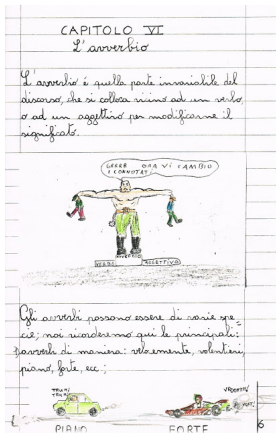 CAPITOLO VI
L'avverbio
L'avverbio é quella parte invariabile del
discorso, che si colloca vicino ad un verbo
o ad un aggettivo per modificarne il
significato.
GRRRR ORA VI CAMBIO
I CONNOTATI
AVVERBIO
VERBO AGGETTIVO
Gli avverbi possono essere di varie spe=
cie; noi ricorderemo qui le principali:
avverbi di maniera: velocemente, volentieri,
piano, forte, ecc;
PIANO FORTE
6